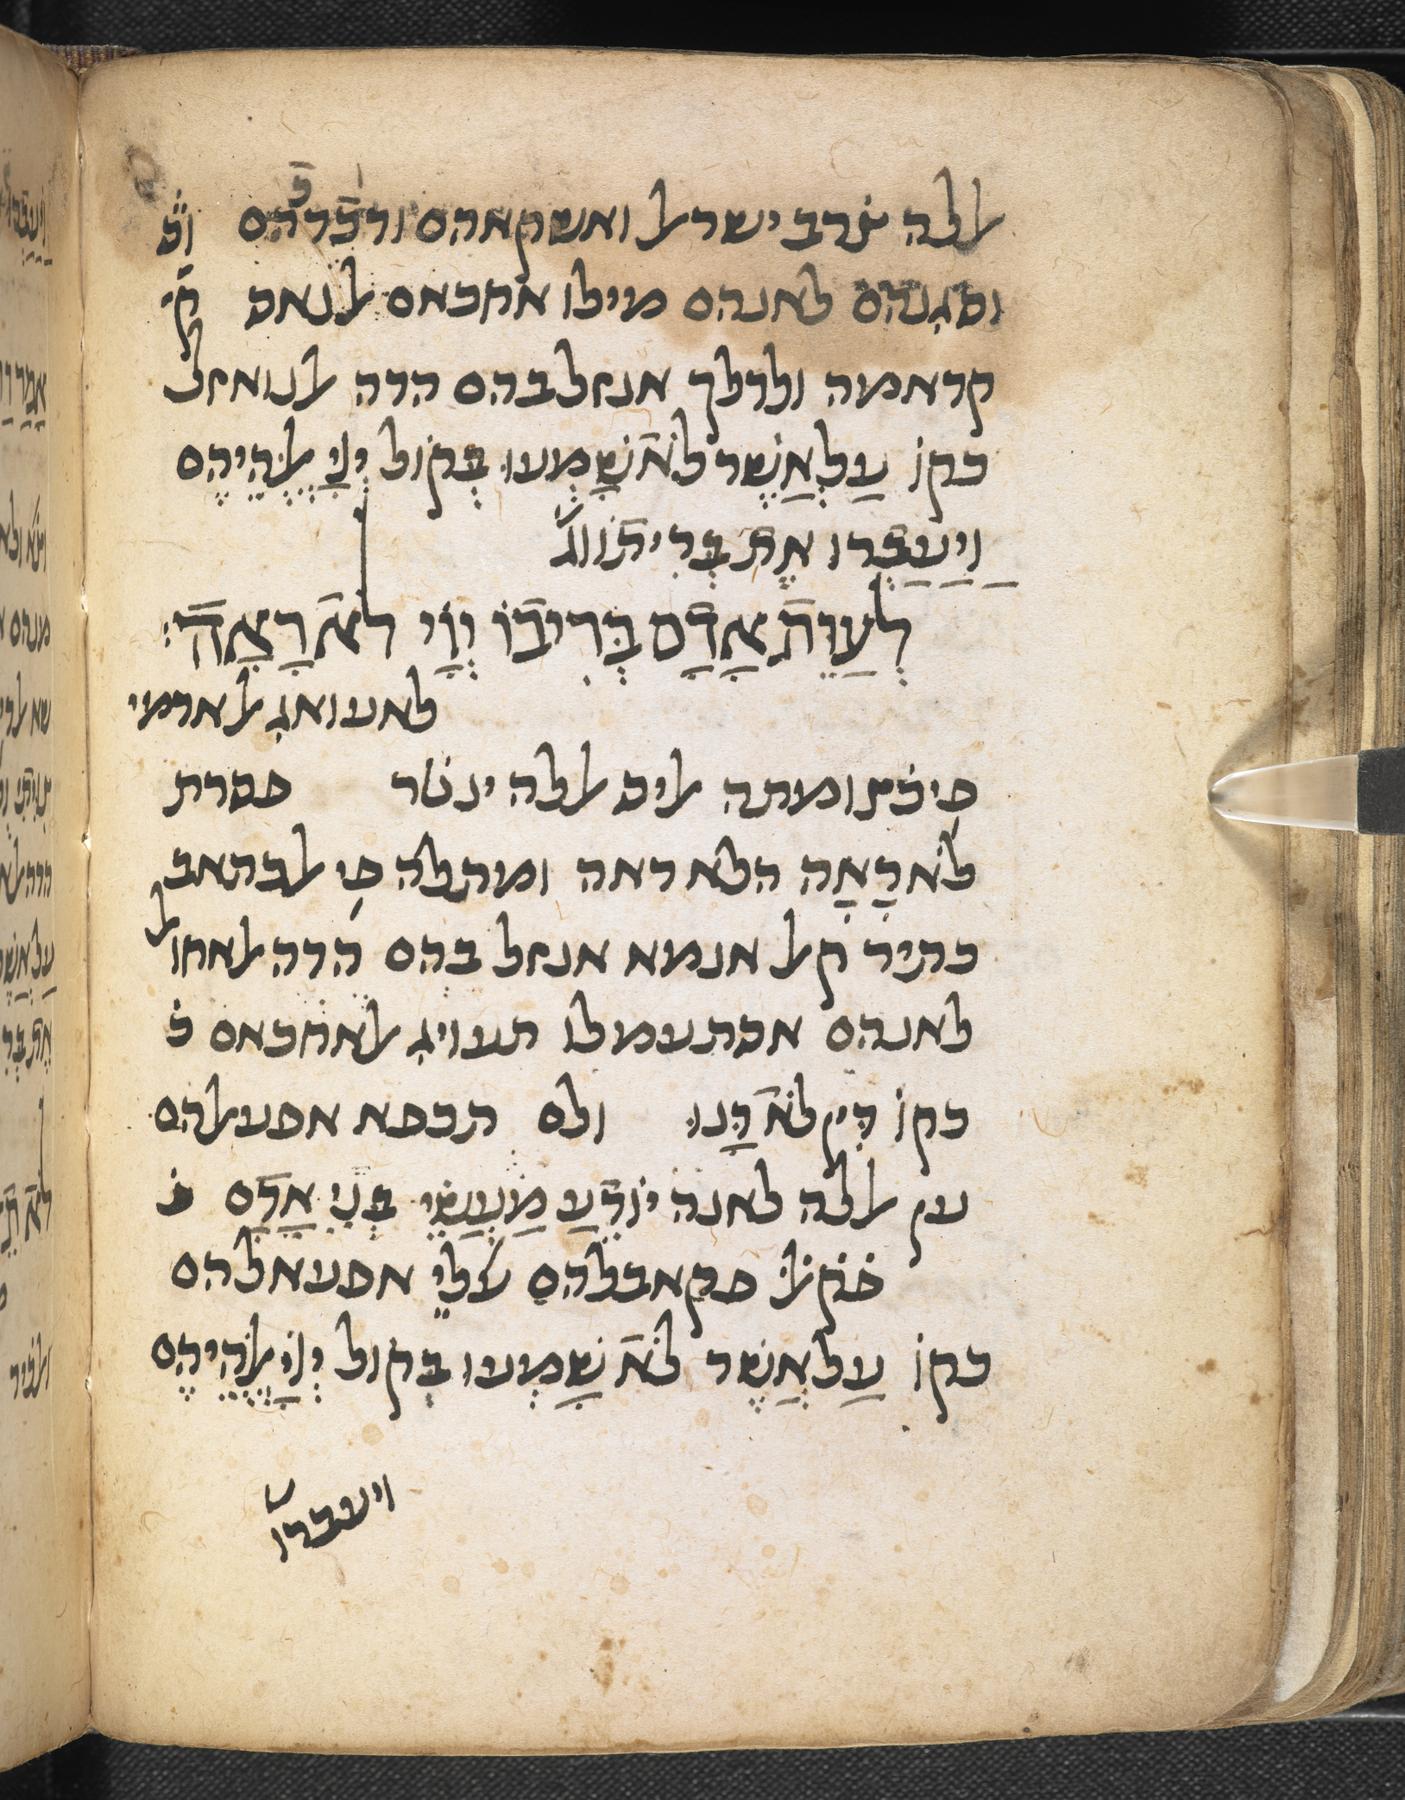 אללה צׄרב ישראל ואשקאהם ודבׄרהם
וסגׄנהם לאנהם מיילו אחכאם אלנאס ק׳
קדאמה ולדלך אנזל בהם הדה אלנואזל
כקו׳ עַל אֲשֶׁר לֹא שָׁמְעוּ בְּקוֹל יְיָ אֱלֹהֵיהֶם
וַיַעַבְרוּ אֶת בְּרִיתוֹ
לְעַוֵת אָדָם בְּרִיבוֹ יְיָ לֹא רָאָה:
לאעואג אלארמי
פי כׄצומתה ליס אללה ינטׄר פסרת
לֹא רָאָה הלא ראה ומתלה פי אלכתאב
כתיר קאל אנמא אנזל בהם הדה אלאחואל
לאנהם אסתעמלו תעויג אלאחכאם
כקו׳ דִין לֹא דָנוּ ולם תכפא אפעאלהם
ען אללה לאנה יוֹדֵעַ מַעֲשֵׂי בְּנֵי אָדָם
פקאבלהם עלי אפעאלהם
כקו׳ עַל אֲשֶׁר לֹא שָׁמְעוּ בְּקוֹל יְיָ אֱלֹהֵיהֶם
ויעברו